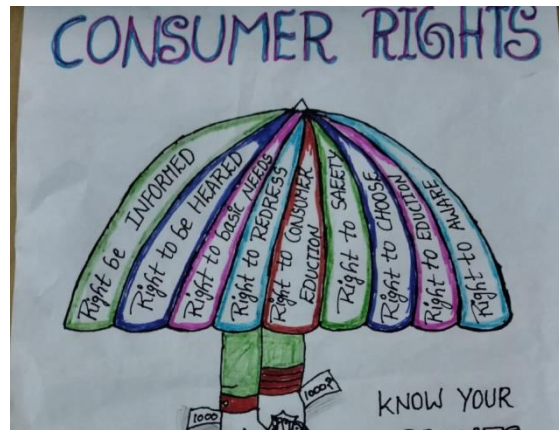 CONSUMER RIGHTS
Right be INFORMED
Right to be HEARED
Right to basic NEEDS
Right to REDRESS
Right to CONSUMER -
EDUCTION
Right to SAFETY
Right to CHOOSE
Right to EDUCTION
Right to AWARE
1000
1000₹
KNOW YOUR